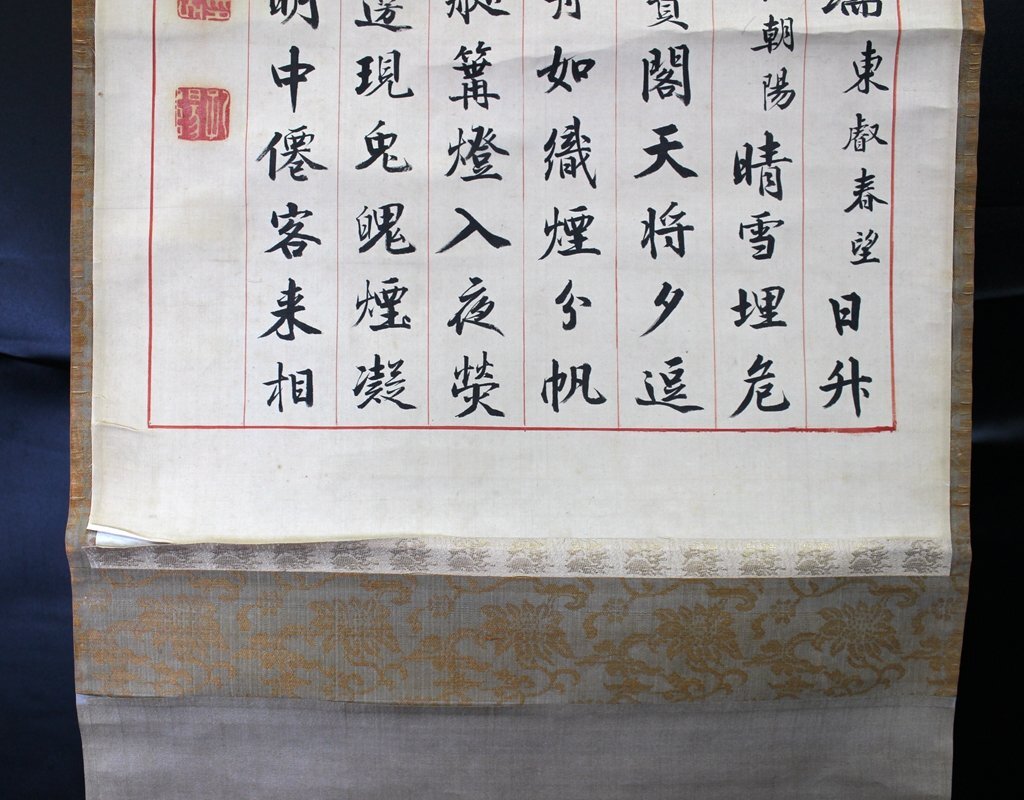 東叡春望 日升
朝陽 晴雪埋危
閣天将夕逗
如織煙分帆
艇篝燈入夜熒
邊現兔魄煙凝
明中僊客来相